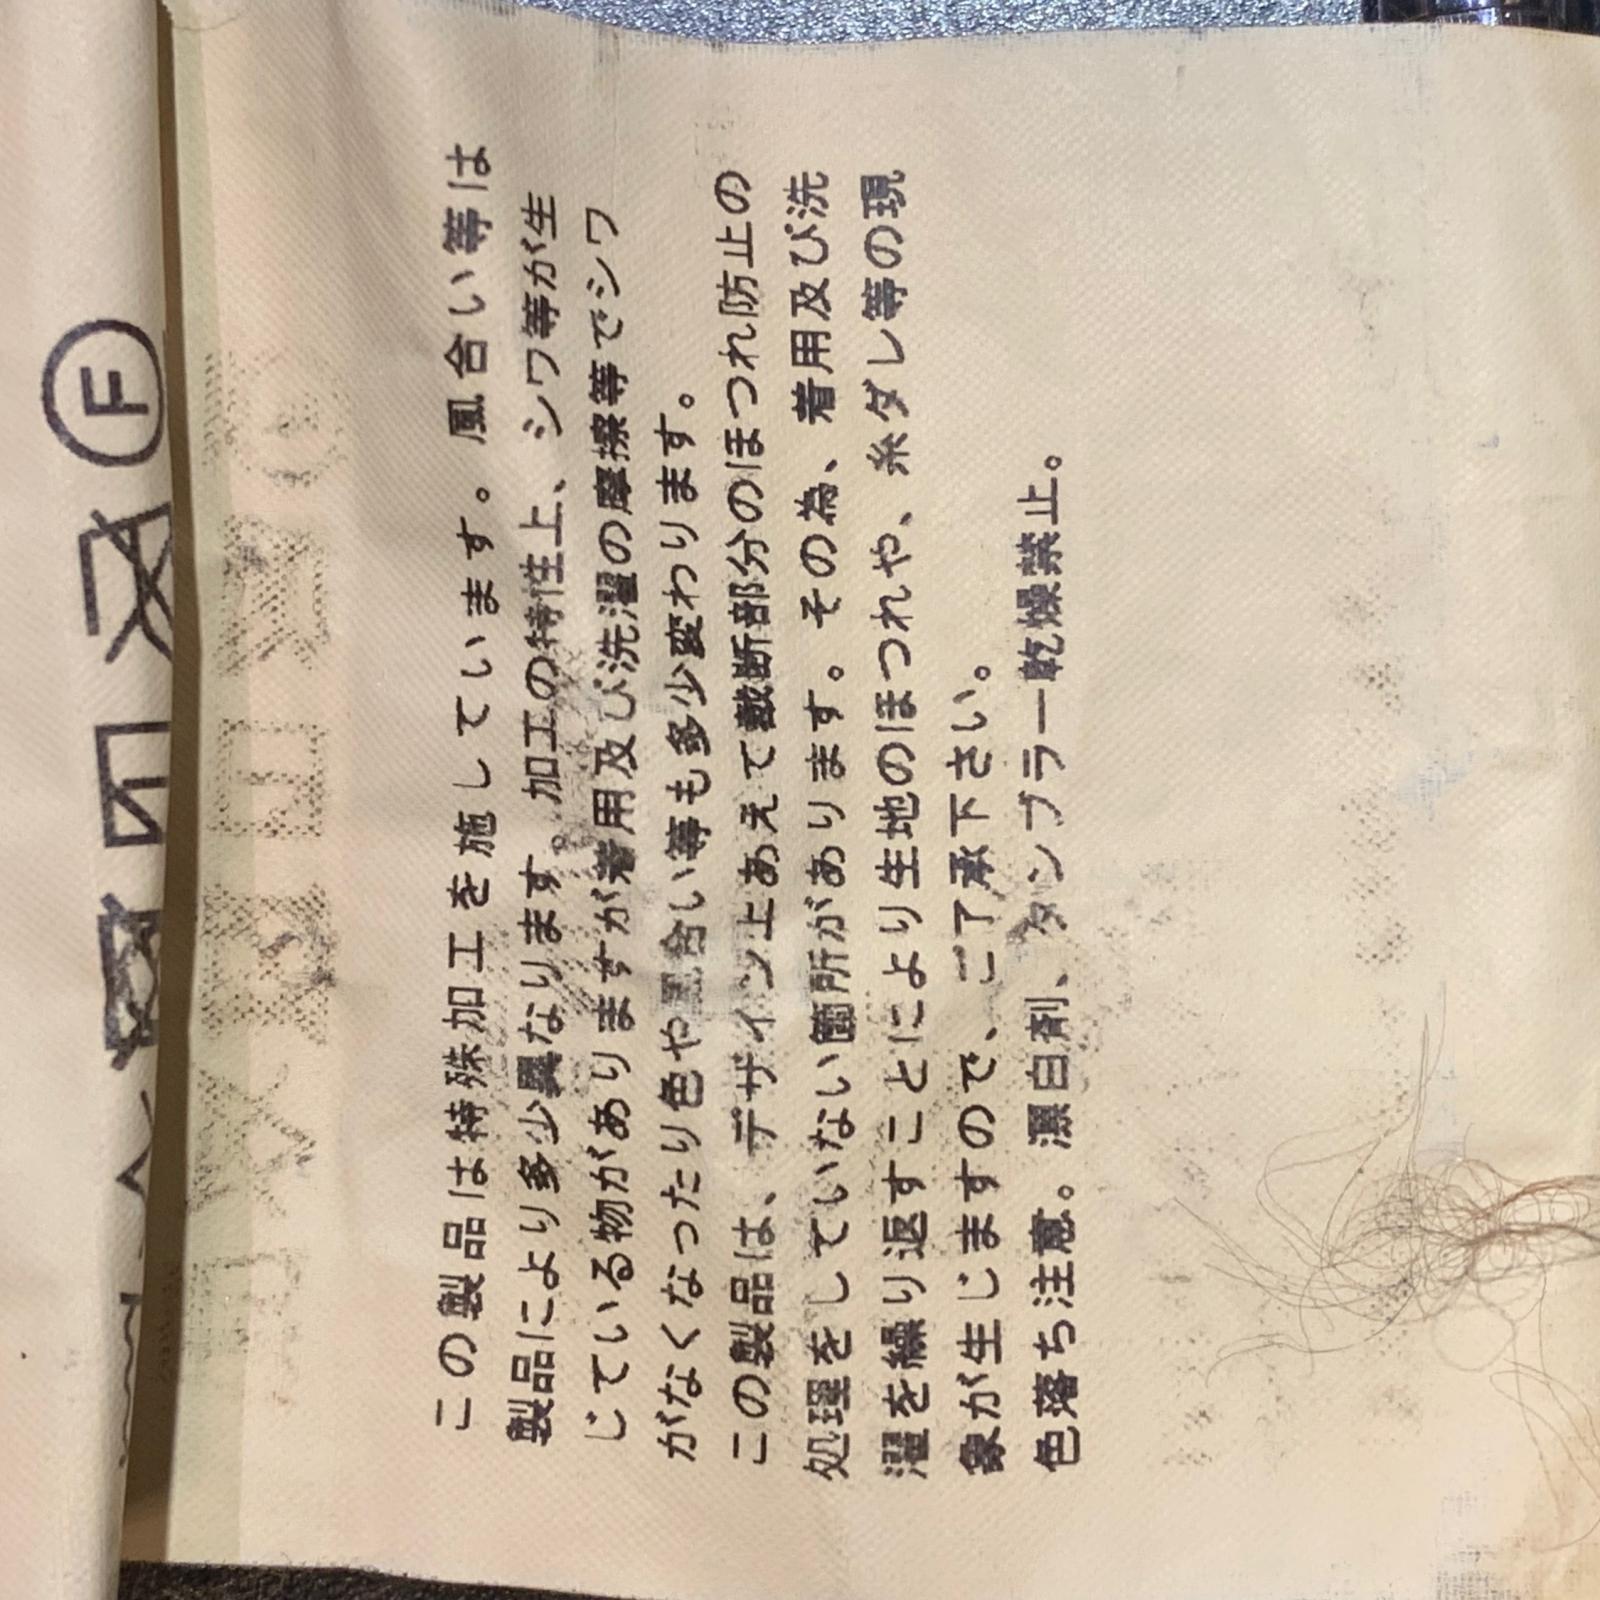 この製品は特殊加工を施しています。風合い等は
製品により多少異なります。加工の特性上、シワ等が生
じている物がありますが着用及び洗濯の摩擦等でシワ
がなくなったり色や風合い等も多少変わります。
この製品は、デザイン上あえて裁断部分のほつれ防止の
処理をしていない箇所があります。その為、着用及び洗
濯を繰り返すことにより生地のほつれや、糸ダレ等の現
象が生じますので、ご了承下さい。
色落ち注意。漂白剤、タンブラー乾燥禁止。
F